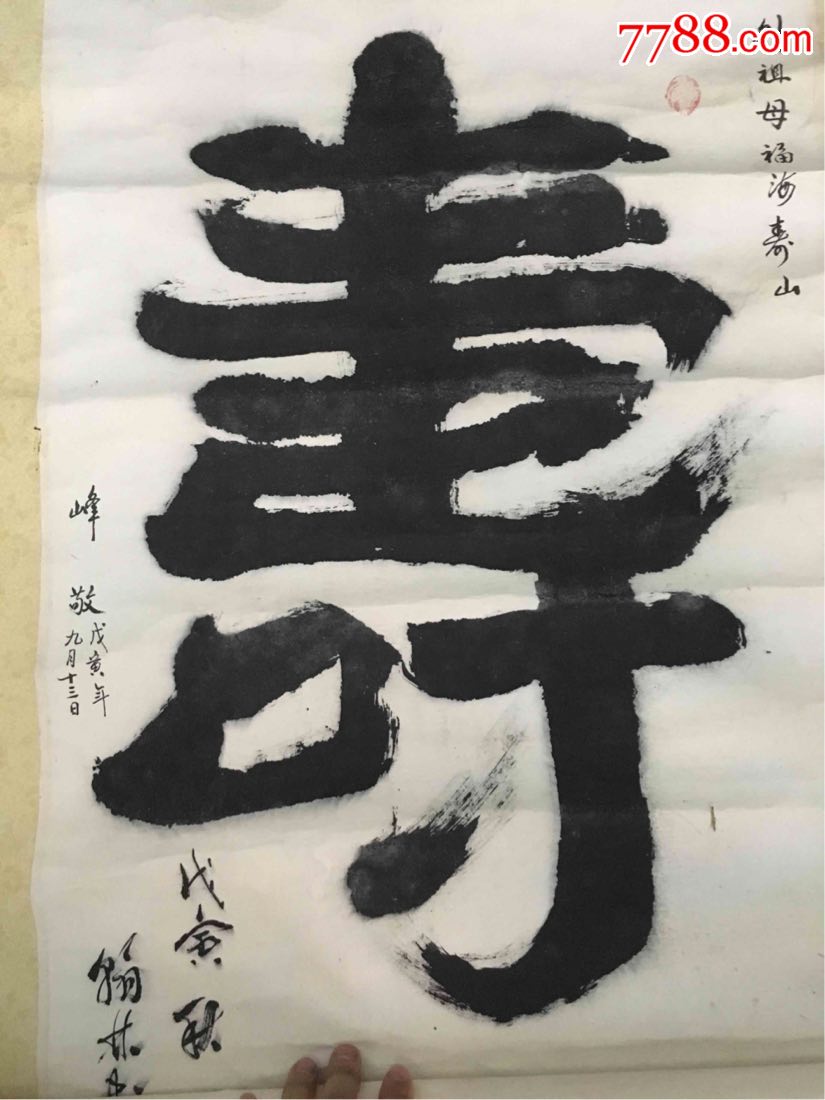 7788.com
祖母福海寿山
壽
峰 敬
戊寅年
九月十三日
戊寅秋
翰林书